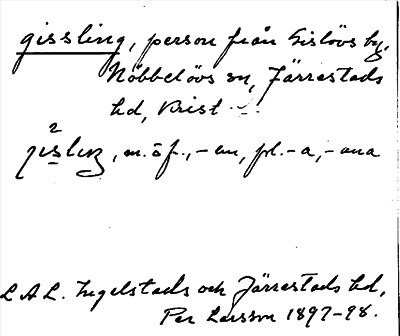 gissling, person från Gislövs by,
Nöbbelövs sn, Järrestads
hd, Krist.
m. o. f., -en, pl. -a, -ana
L A L. Ingelstads och Järrestads hd,
Per Larsson 1897-98.